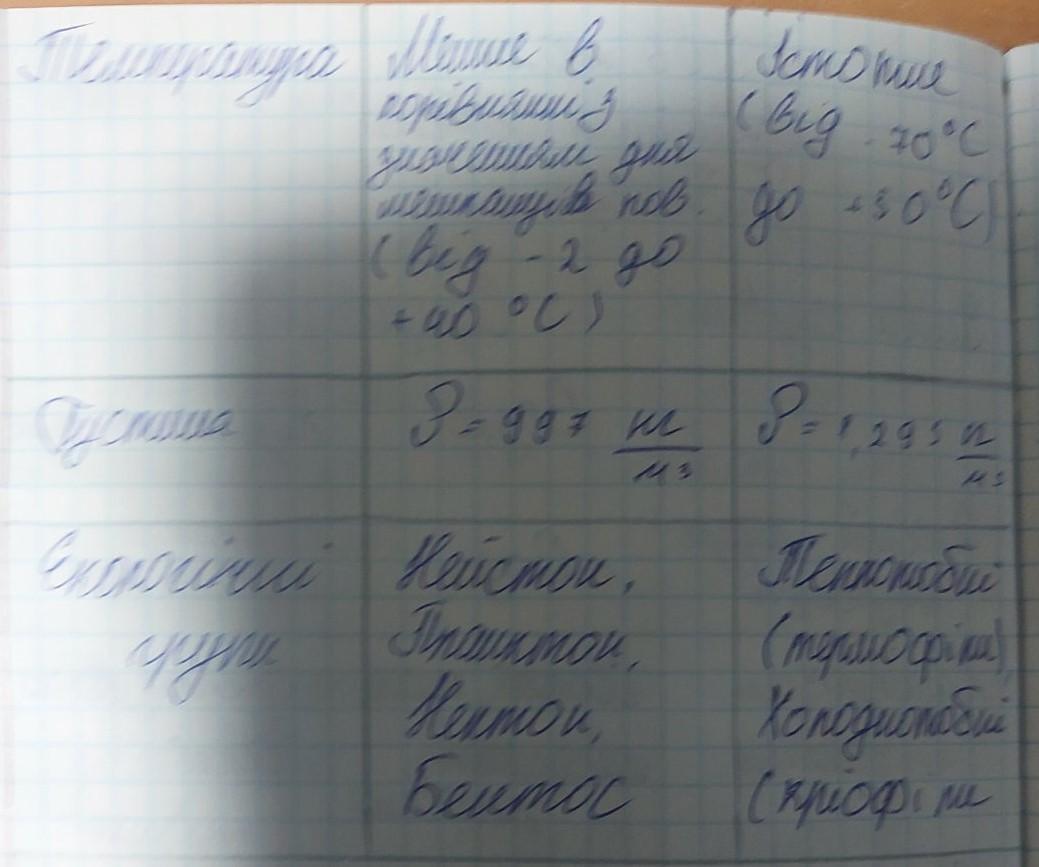 Температура
Менше в
порівнянні з
значенням для
мешканців пов.
(від -2 до
+40 °C)
Істотне
(від -70°C
до +50°C)
Густина
ρ = 997 кг/м3
ρ = 1,293 кг/м3
Екологічні
групи
Нейстон,
Планктон,
Нектон,
Бентос
Теплолюбні
(термофіли),
Холоднолюбні
(кріофіли